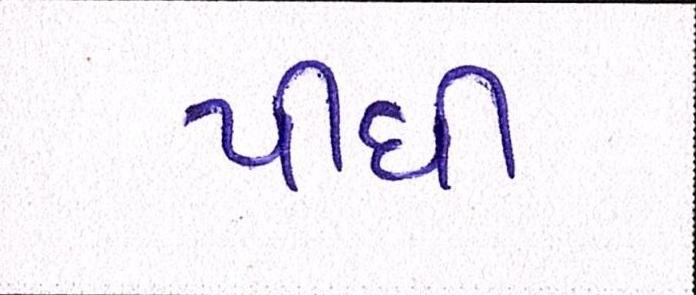 પીધી